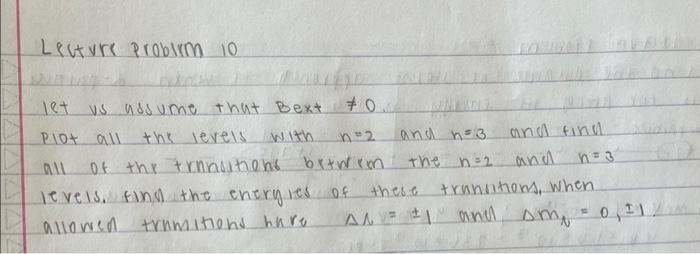 Lecture Problem 10
let us assume that Bext ≠ 0.
Plot all the levels with n=2 and n=3 and find
all of the transitions between the n=2 and n=3
levels. Find the energies of these transitions, when
allowed transitions have Δl = ±1 and Δm_l = 0, ±1.